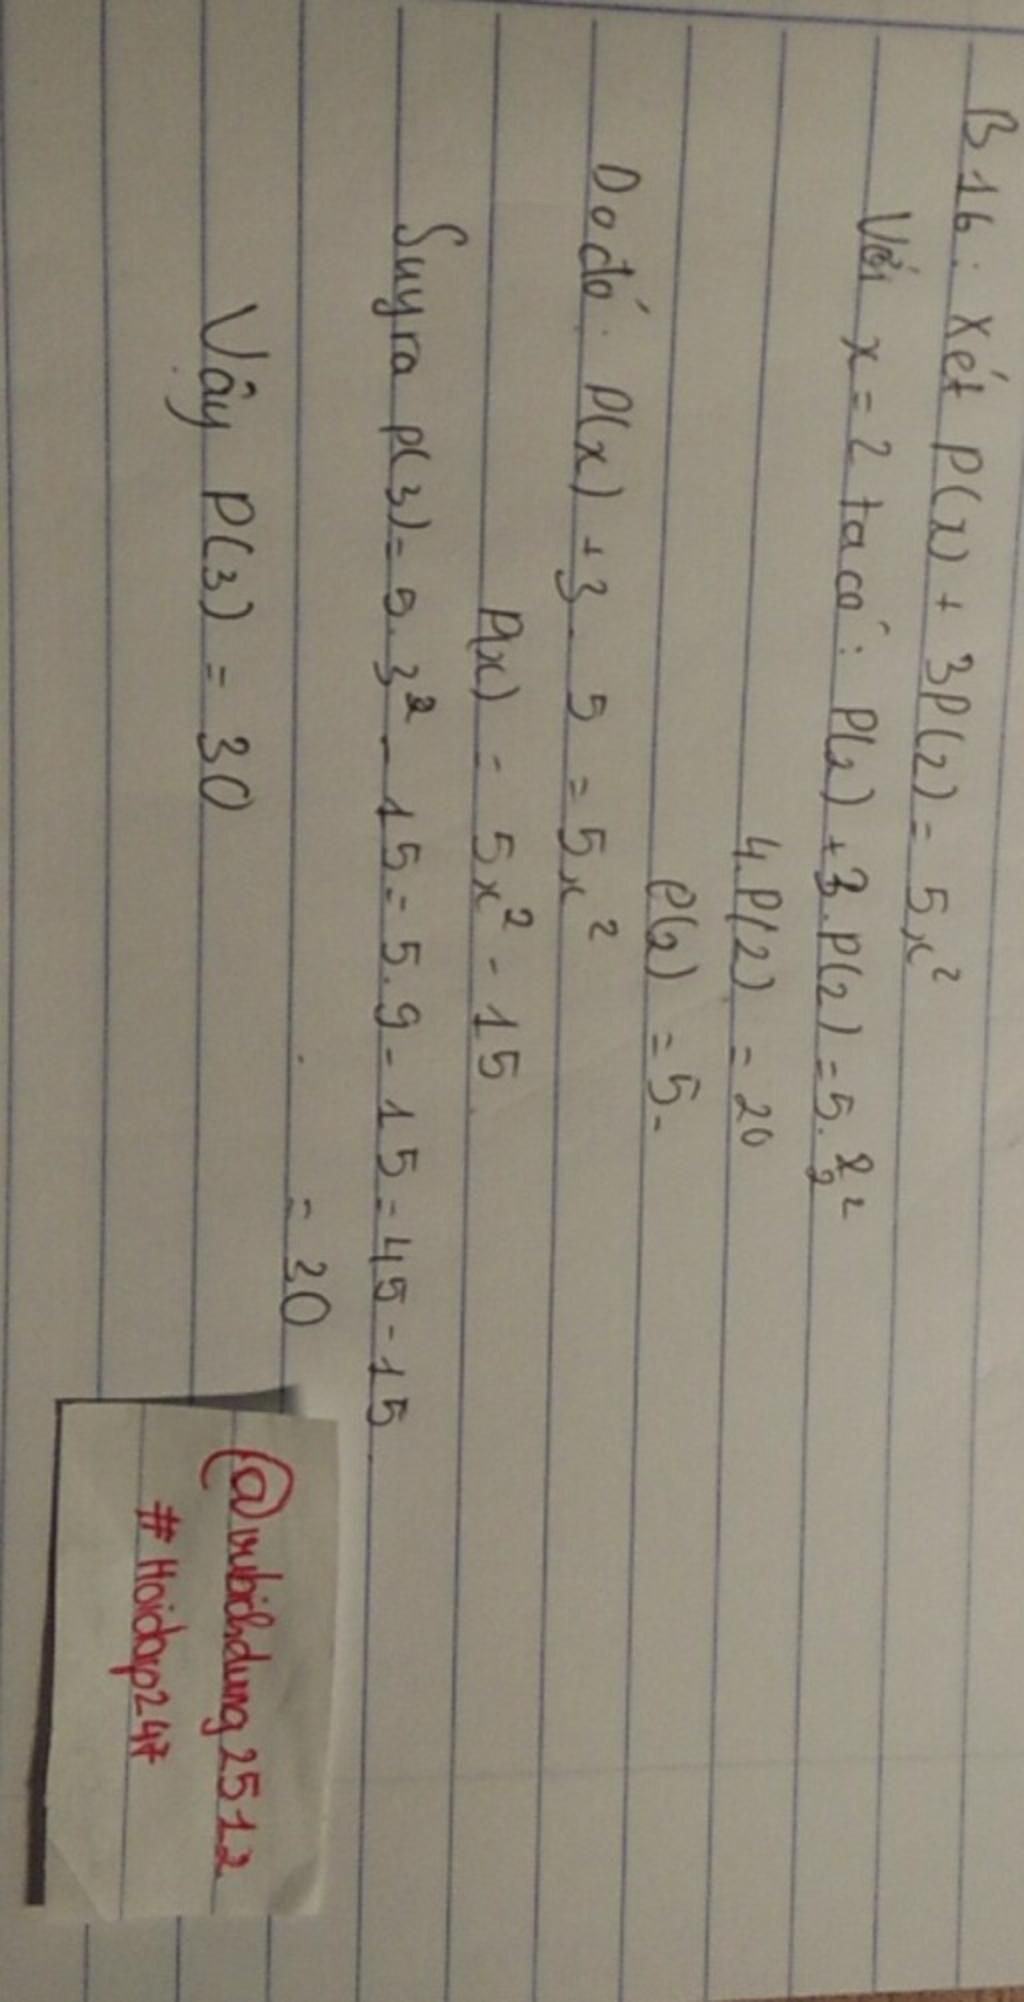 B16: Xét P(x) + 3P(2) = 5x²
Với x = 2 ta có: P(2) + 3.P(2) = 5.2²
4.P(2) = 20
P(2) = 5.
Do đó: P(x) + 3.5 = 5x²
P(x) = 5x² - 15
Suy ra P(3) = 5.3² - 15 = 5.9 - 15 = 45 - 15
= 30
Vậy P(3) = 30
@vubichdung2512
#Hoidap247